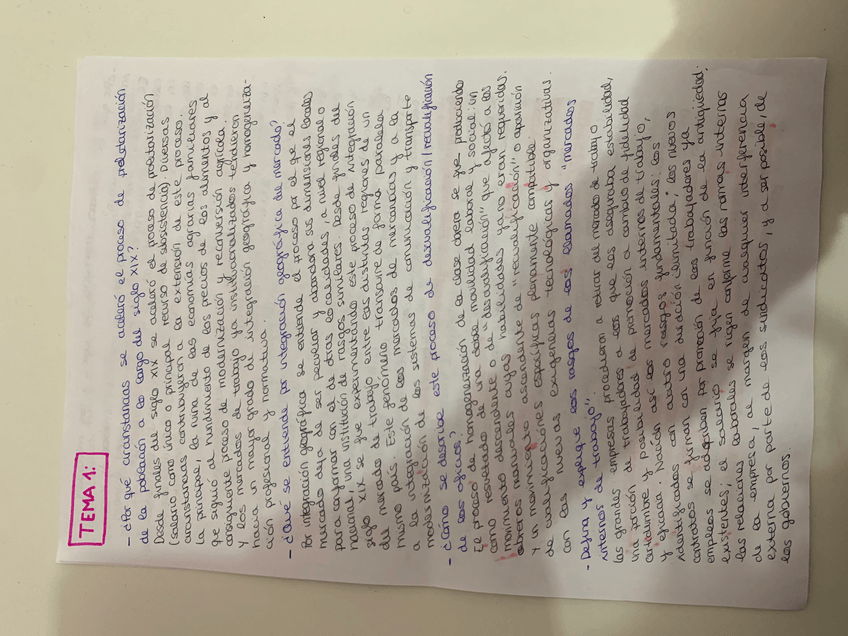 TEMA 1:
- ¿Por qué circunstancias se aceleró el proceso de proletarización
de la población a lo largo del siglo XIX?
Desde finales del siglo XIX se aceleró el proceso de proletarización
(salario como único o principal recurso de subsistencia). Diversas
circunstancias contribuyeron a la extensión de este proceso.
la principal, la ruina de las economías agrarias familiares
que siguió al hundimiento de los precios de los alimentos y al
consiguiente proceso de modernización y reconversión agrícola.
Y los mercados de trabajo ya institucionalizados tendieron
hacia un mayor grado de integración geográfica y homogeniza-
ción profesional y normativa.
- ¿Que se entiende por integración geográfica del mercado?
Por integración geográfica se entiende el proceso por el que el
mercado deja de ser peculiar y abandona sus dimensiones locales
para conformar con el de otras localidades, a nivel regional o
nacional, una institución de rasgos similares. Desde finales del
siglo XIX se fue experimentando este proceso de integración
del mercado de trabajo entre las distintas regiones de un
mismo país. Este fenómeno transcurre de forma paralela
a la integración de los mercados de mercancías y a la
modernización de los sistemas de comunicación y transporte
- ¿Cómo se describe este proceso de descualificación/recualificación
de los oficios?
El proceso de homogeneización de la clase obrera se fue produciendo
como resultado de una doble movilidad laboral y social: un
movimiento descendente o de "descualificación" que afectó a los
obreros manuales cuyas habilidades ya no eran requeridas.
Y un movimiento ascendente de "recualificación" o aparición
de cualificaciones específicas plenamente compatible
con las nuevas exigencias tecnológicas y organizativas.
- Defina y explique los rasgos de los llamados "mercados
internos de trabajo".
las grandes empresas procedieron a retirar del mercado de trabajo
una porción de trabajadores a los que les aseguraba estabilidad,
certidumbre y posibilidad de promoción a cambio de fidelidad
y eficacia. Nacían así los mercados internos de trabajo,
identificados con cuatro rasgos fundamentales: los
contratos se firman con una duración ilimitada; los nuevos
empleos se adquieren por promoción de los trabajadores ya
existentes; el salario se fija en función de la antigüedad;
las relaciones laborales se rigen conforme las normas internas
de la empresa, al margen de cualquier interferencia
externa por parte de los sindicatos, y a ser posible, de
los gobiernos.